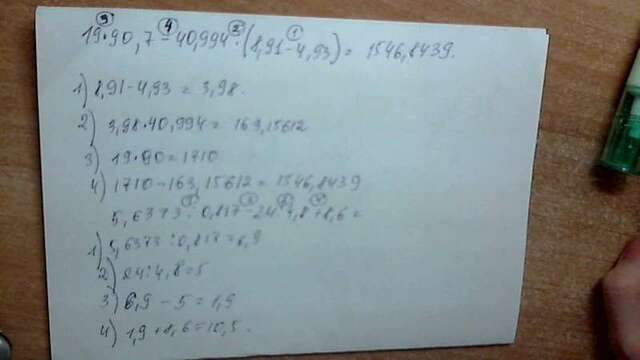 ③ ④ ② ①
19·90,7-40,994·(8,91-4,93)= 1546,8439.
1) 8,91-4,93=3,98.
2) 3,98·40,994=163,15612
3) 19·90=1710
4) 1710-163,15612=1546,8439
5,6373:0,817-24:4,8+8,6=
1) 5,6373:0,817=6,9
2) 24:4,8=5
3) 6,9-5=1,9
4) 1,9+8,6=10,5.